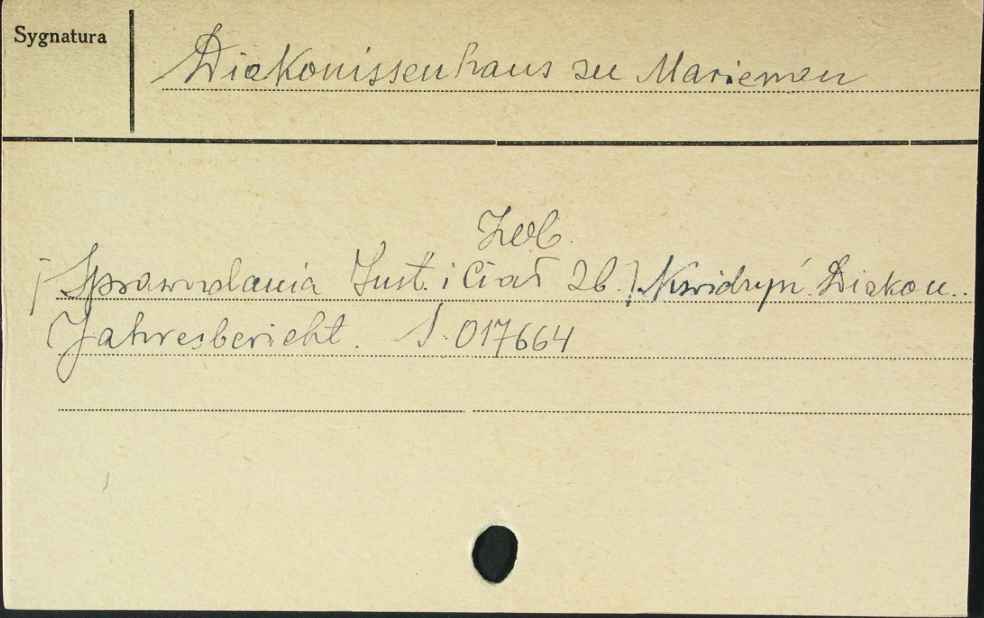 Sygnatura
Diakonissenhaus zu Mariemen
Zob.
[Sprawozdania Inst. i Ciał Zb.] Kwidzyń. Diakon..
Jahresbericht. S. 017664